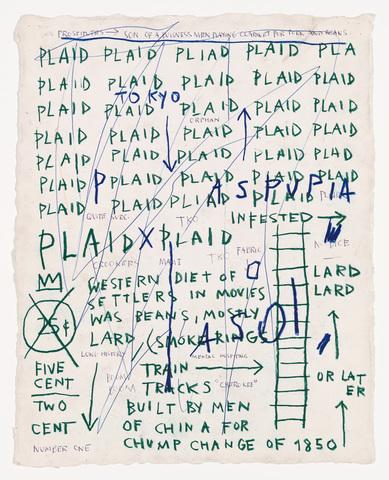 PROSTITUTES → SON OF A WITNESS MAN PLAYING CLARINET FOR PORK AND BEANS
PLAID PLAID PLIAD PLAID PLA
PLAID PLAID PLAID PLAID PLAID
PLAID PLAID PLAID PLAID PLAID
TOKYO
ORPHAN
PLAID PLAID PLAID PLAID PLAID
PLAID PLAID PLAID PLAID PLAID
PLAID P PLAID PLAID PLAID
ASPVPIA
PLAID PLAID PLAID
TKO
INFESTED →
PLAID X PLAID
FABRIC
WESTERN DIET OF
SETTLERS IN MOVIES
WAS BEANS, MOSTLY
LARD (SMOKE RINGS
LARD
LARD
25¢
ASOI
MENTAL HOSPITAL
FIVE
CENT
TRAIN →
TRACKS "CHEROKEE"
OR LAT
ER
TWO
CENT
BUILT BY MEN
OF CHINA FOR
CHUMP CHANGE OF 1850
NUMBER ONE